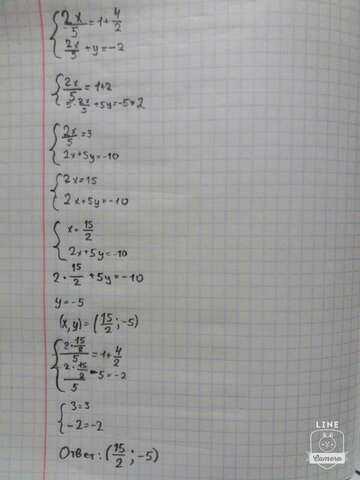 {2x/5 = 1 + 4/2
{2x/5 + y = -2
{2x/5 = 1+2
{5·2x/5 + 5y = -5*2
{2x/5 = 3
{2x+5y = -10
{2x = 15
{2x+5y = -10
{x = 15/2
{2x+5y = -10
2·15/2 + 5y = -10
y = -5
(x,y) = (15/2; -5)
{2·15/2/5 = 1 + 4/2
{2·15/2/5 - 5 = -2
{3 = 3
{-2 = -2
Ответ: (15/2; -5)
LINE
Camera